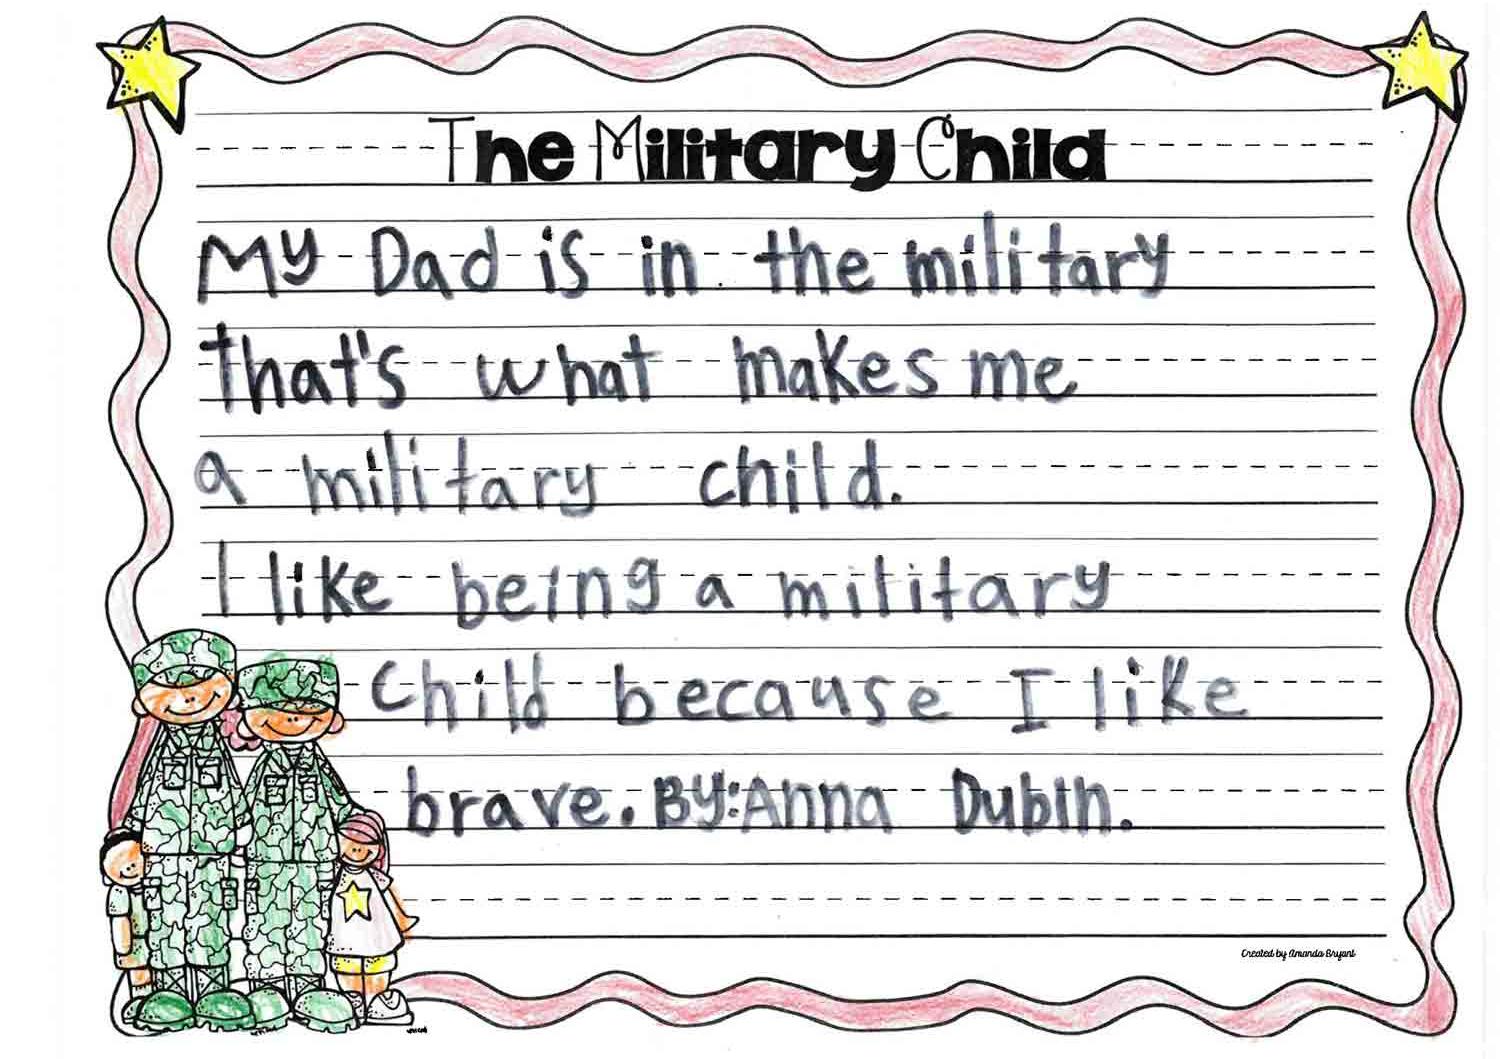 The Military Child
My Dad is in the military
that's what makes me
a military child.
I like being a military
child because I like
brave. By: Anna Dubin.
Created by Amanda Bryant